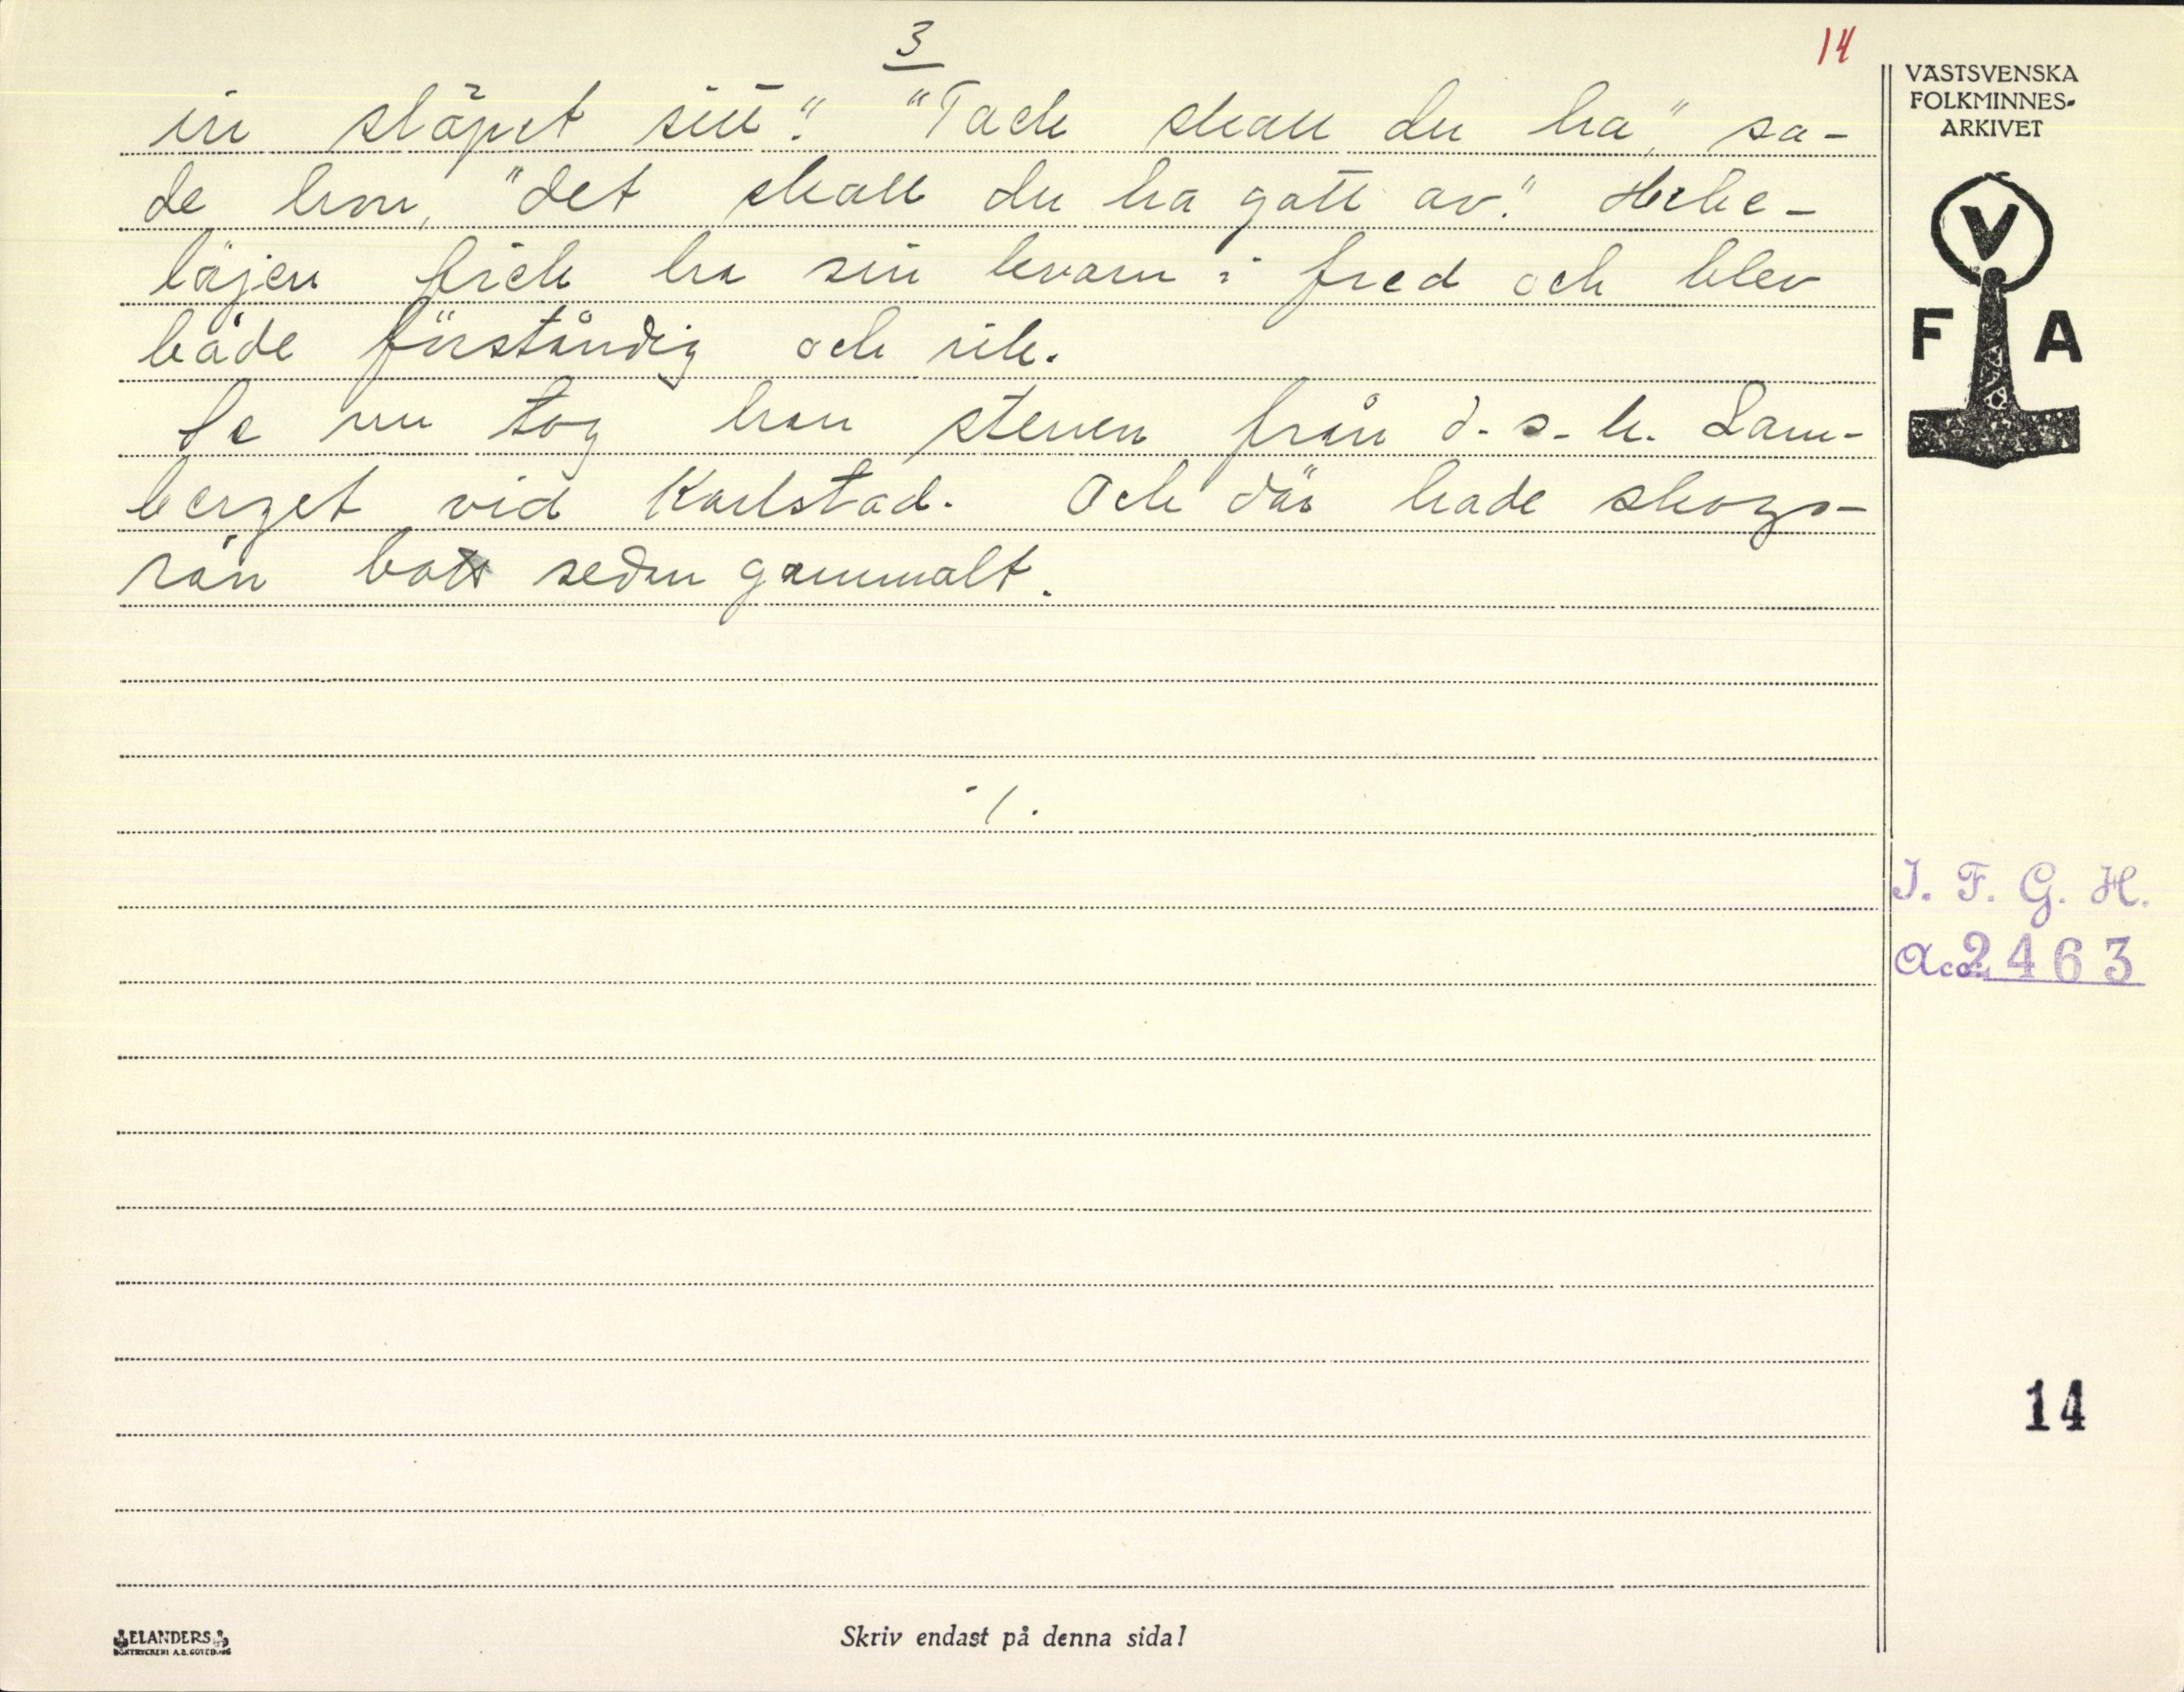 3
14
in släpet sitt". "Tack skall du ha", sa-
de hon, "det skall du ha gott av." Hebe-
läjen fick ha sin kvarn i fred och blev
både förståndig och rik.
Se nu tog han stenen från d. s. k. Lam-
berget vid Karlstad. Och där hade skogs-
rån bott sedan gammalt.
./.
VÄSTSVENSKA
FOLKMINNES-
ARKIVET
V
F A
I. F. G. H.
Acc. 2463
14
ELANDERS
BOKTRYCKERI A.B. GÖTEBORG
Skriv endast på denna sida!